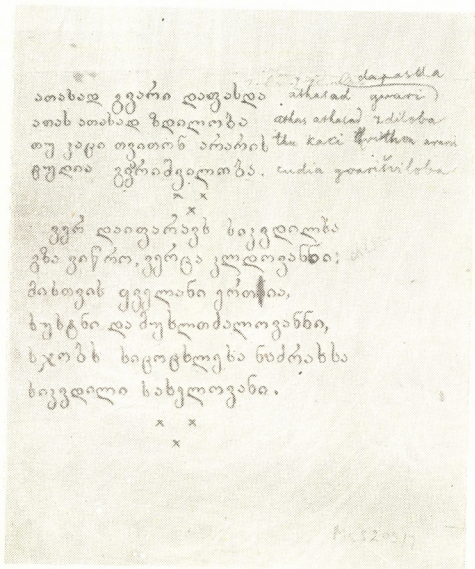 dapasda
ათასად გვარი დაფასდა athasad gvari
ათას ათასად ზდილობა athas athasad zdiloba
თუ კაცი თვითონ არარის thu kaci thvithon araris
ცუდია გვარიშვილობა. cudia gvarišviloba
× ×
×
ვერ დაიფარავს სიკვდილსა
გზა ვიწრო, ვერცა კლდოვანი;
მისთვის ყველანი ერთია,
სუსტნი და მუხლთძალოვანნი,
სჯობს სიცოცხლესა ნაძრახსა
სიკვდილი სახელოვანი.
× ×
×